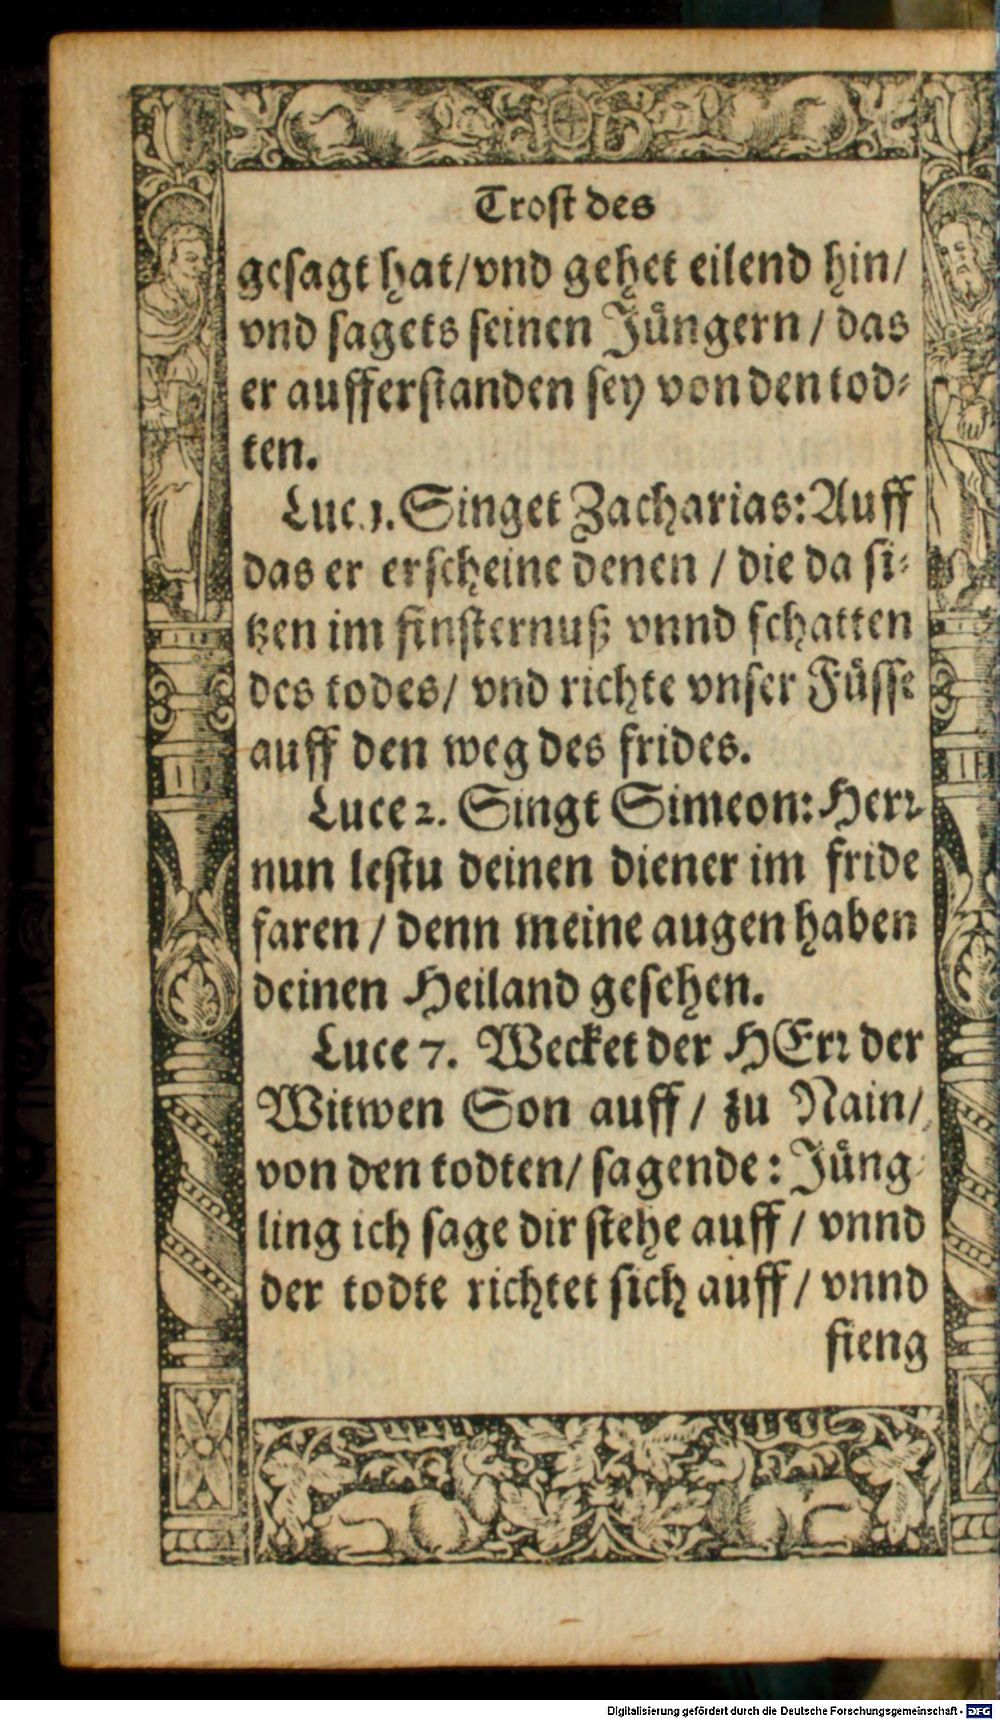 Trost des
gesagt hat/vnd gehet eilend hin/
vnd sagets seinen Jüngern / das
er aufferstanden sey von den tod⸗
ten.
Luc. 1. Singet Zacharias: Auff
das er erscheine denen / die da si⸗
tzen im finsternuß vnnd schatten
des todes/ vnd richte vnser Füsse
auff den weg des frides.
Luce 2. Singt Simeon: Herr
nun lestu deinen diener im fride
faren / denn meine augen haben
deinen Heiland gesehen.
Luce 7. Wecket der HErr der
Witwen Son auff / zu Nain/
von den todten/ sagende: Jüng⸗
ling ich sage dir stehe auff / vnnd
der todte richtet sich auff / vnnd
fieng
Digitalisierung gefördert durch die Deutsche Forschungsgemeinschaft - DFG